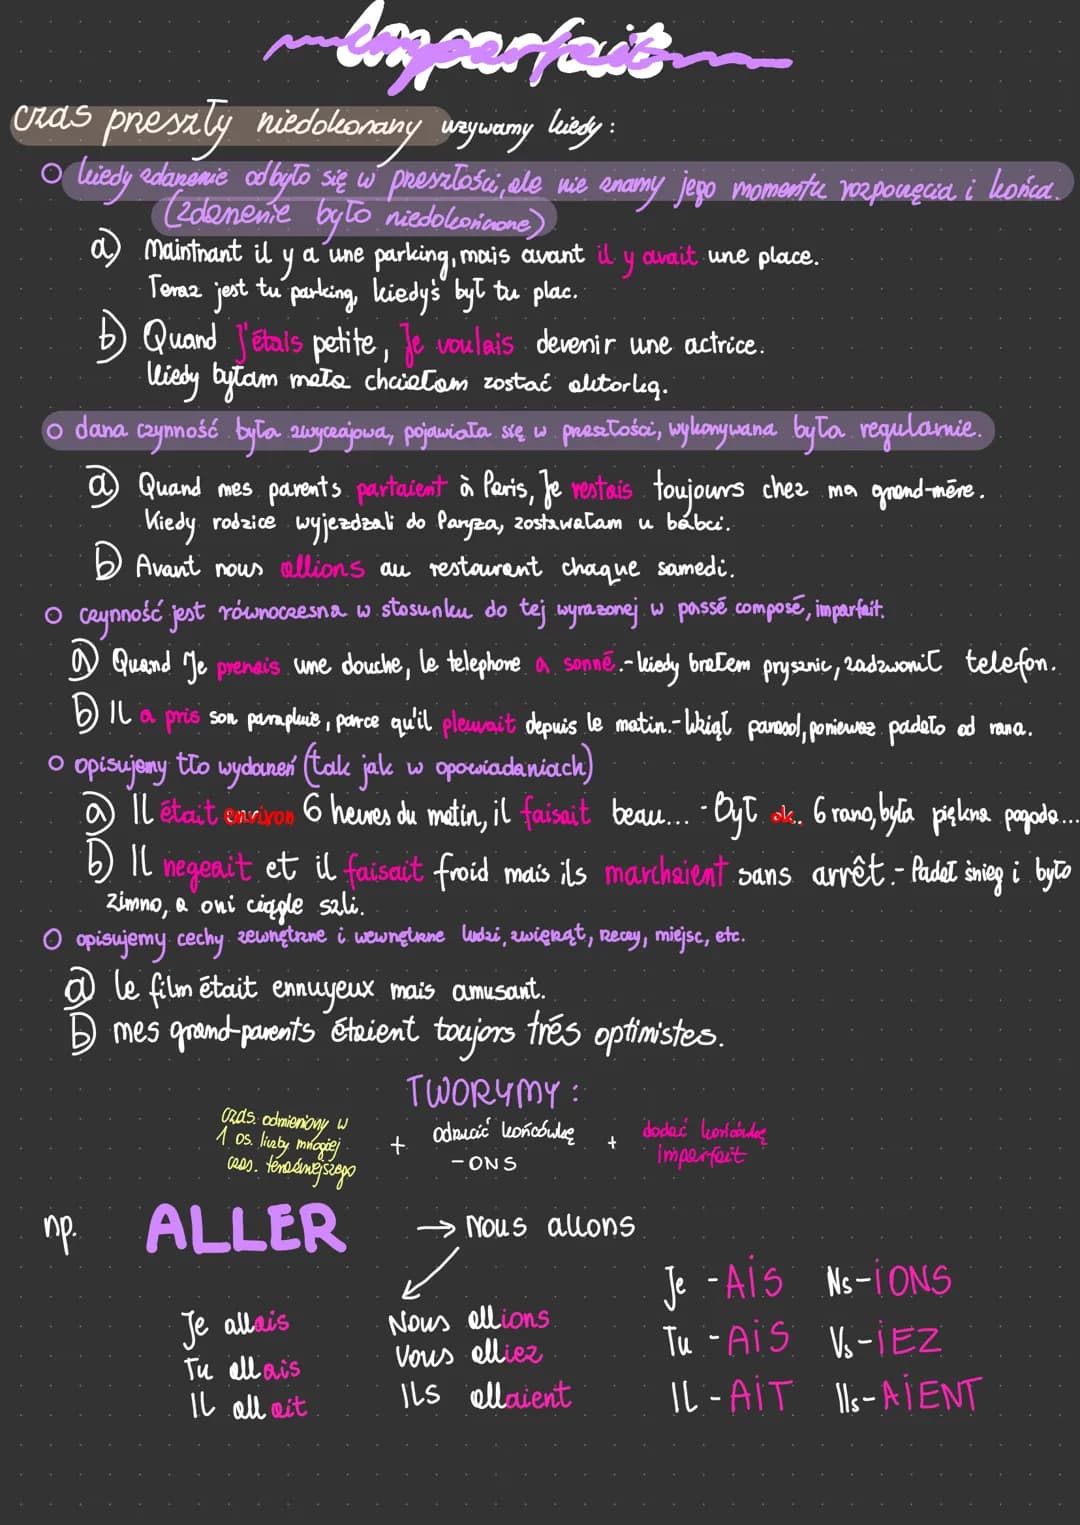 Imparfait
czas preszły niedokonany używamy kiedy :
kiedy zdarenie odbyło się w preszłości, ale nie znamy jego momentu rozpoczęcia i końca.
(zdarenie było niedokończone)
a) Maintnant il y a une parking, mais avant il y avait une place.
Teraz jest tu parking, kiedyś był tu plac.
b) Quand J'étais petite, Je voulais devenir une actrice.
Kiedy byłam mała chciałam zostać aktorką.
dana czynność była zwyczajowa, pojawiała się w preszłości, wykonywana była regularnie.
a) Quand mes parents partaient à Paris, Je restais toujours chez ma grand-mère.
Kiedy rodzice wyjezdzali do Paryza, zostawałam u babci.
b) Avant nous allions au restaurant chaque samedi.
czynność jest równoczesna w stosunku do tej wyrazonej w passé composé, imparfait.
a) Quand Je prenais une douche, le telephone a sonné.- kiedy brałem prysznic, zadzwonił telefon.
b) Il a pris son parapluie, parce qu'il pleuvait depuis le matin.- Wziął parasol, poniewaz padało od rana.
opisujemy tło wydarzeń (tak jak w opowiadaniach)
a) Il était environ 6 heures du matin, il faisait beau... - Był ok. 6 rano, była piękna pogoda...
b) Il negeait et il faisait froid mais ils marchaient sans arrêt.- Padał śnieg i było
zimno, a oni ciągle szli.
opisujemy cechy zewnętrzne i wewnętrzne ludzi, zwierząt, rzeczy, miejsc, etc.
a) le film était ennuyeux mais amusant.
b) mes grand-parents étaient toujors trés optimistes.
TWORYMY :
czas. odmieniony w
1 os. liczby mnogiej
czas. teraźniejszego
+ odrzucić końcówkę
-ONS
+ dodać końcówkę
imparfait
np. ALLER → Nous allons
Je allais
Tu allais
Il allait
Nous allions
Vous alliez
Ils allaient
Je -AIS Ns-IONS
Tu -AIS Vs-IEZ
IL -AIT Ils-AIENT